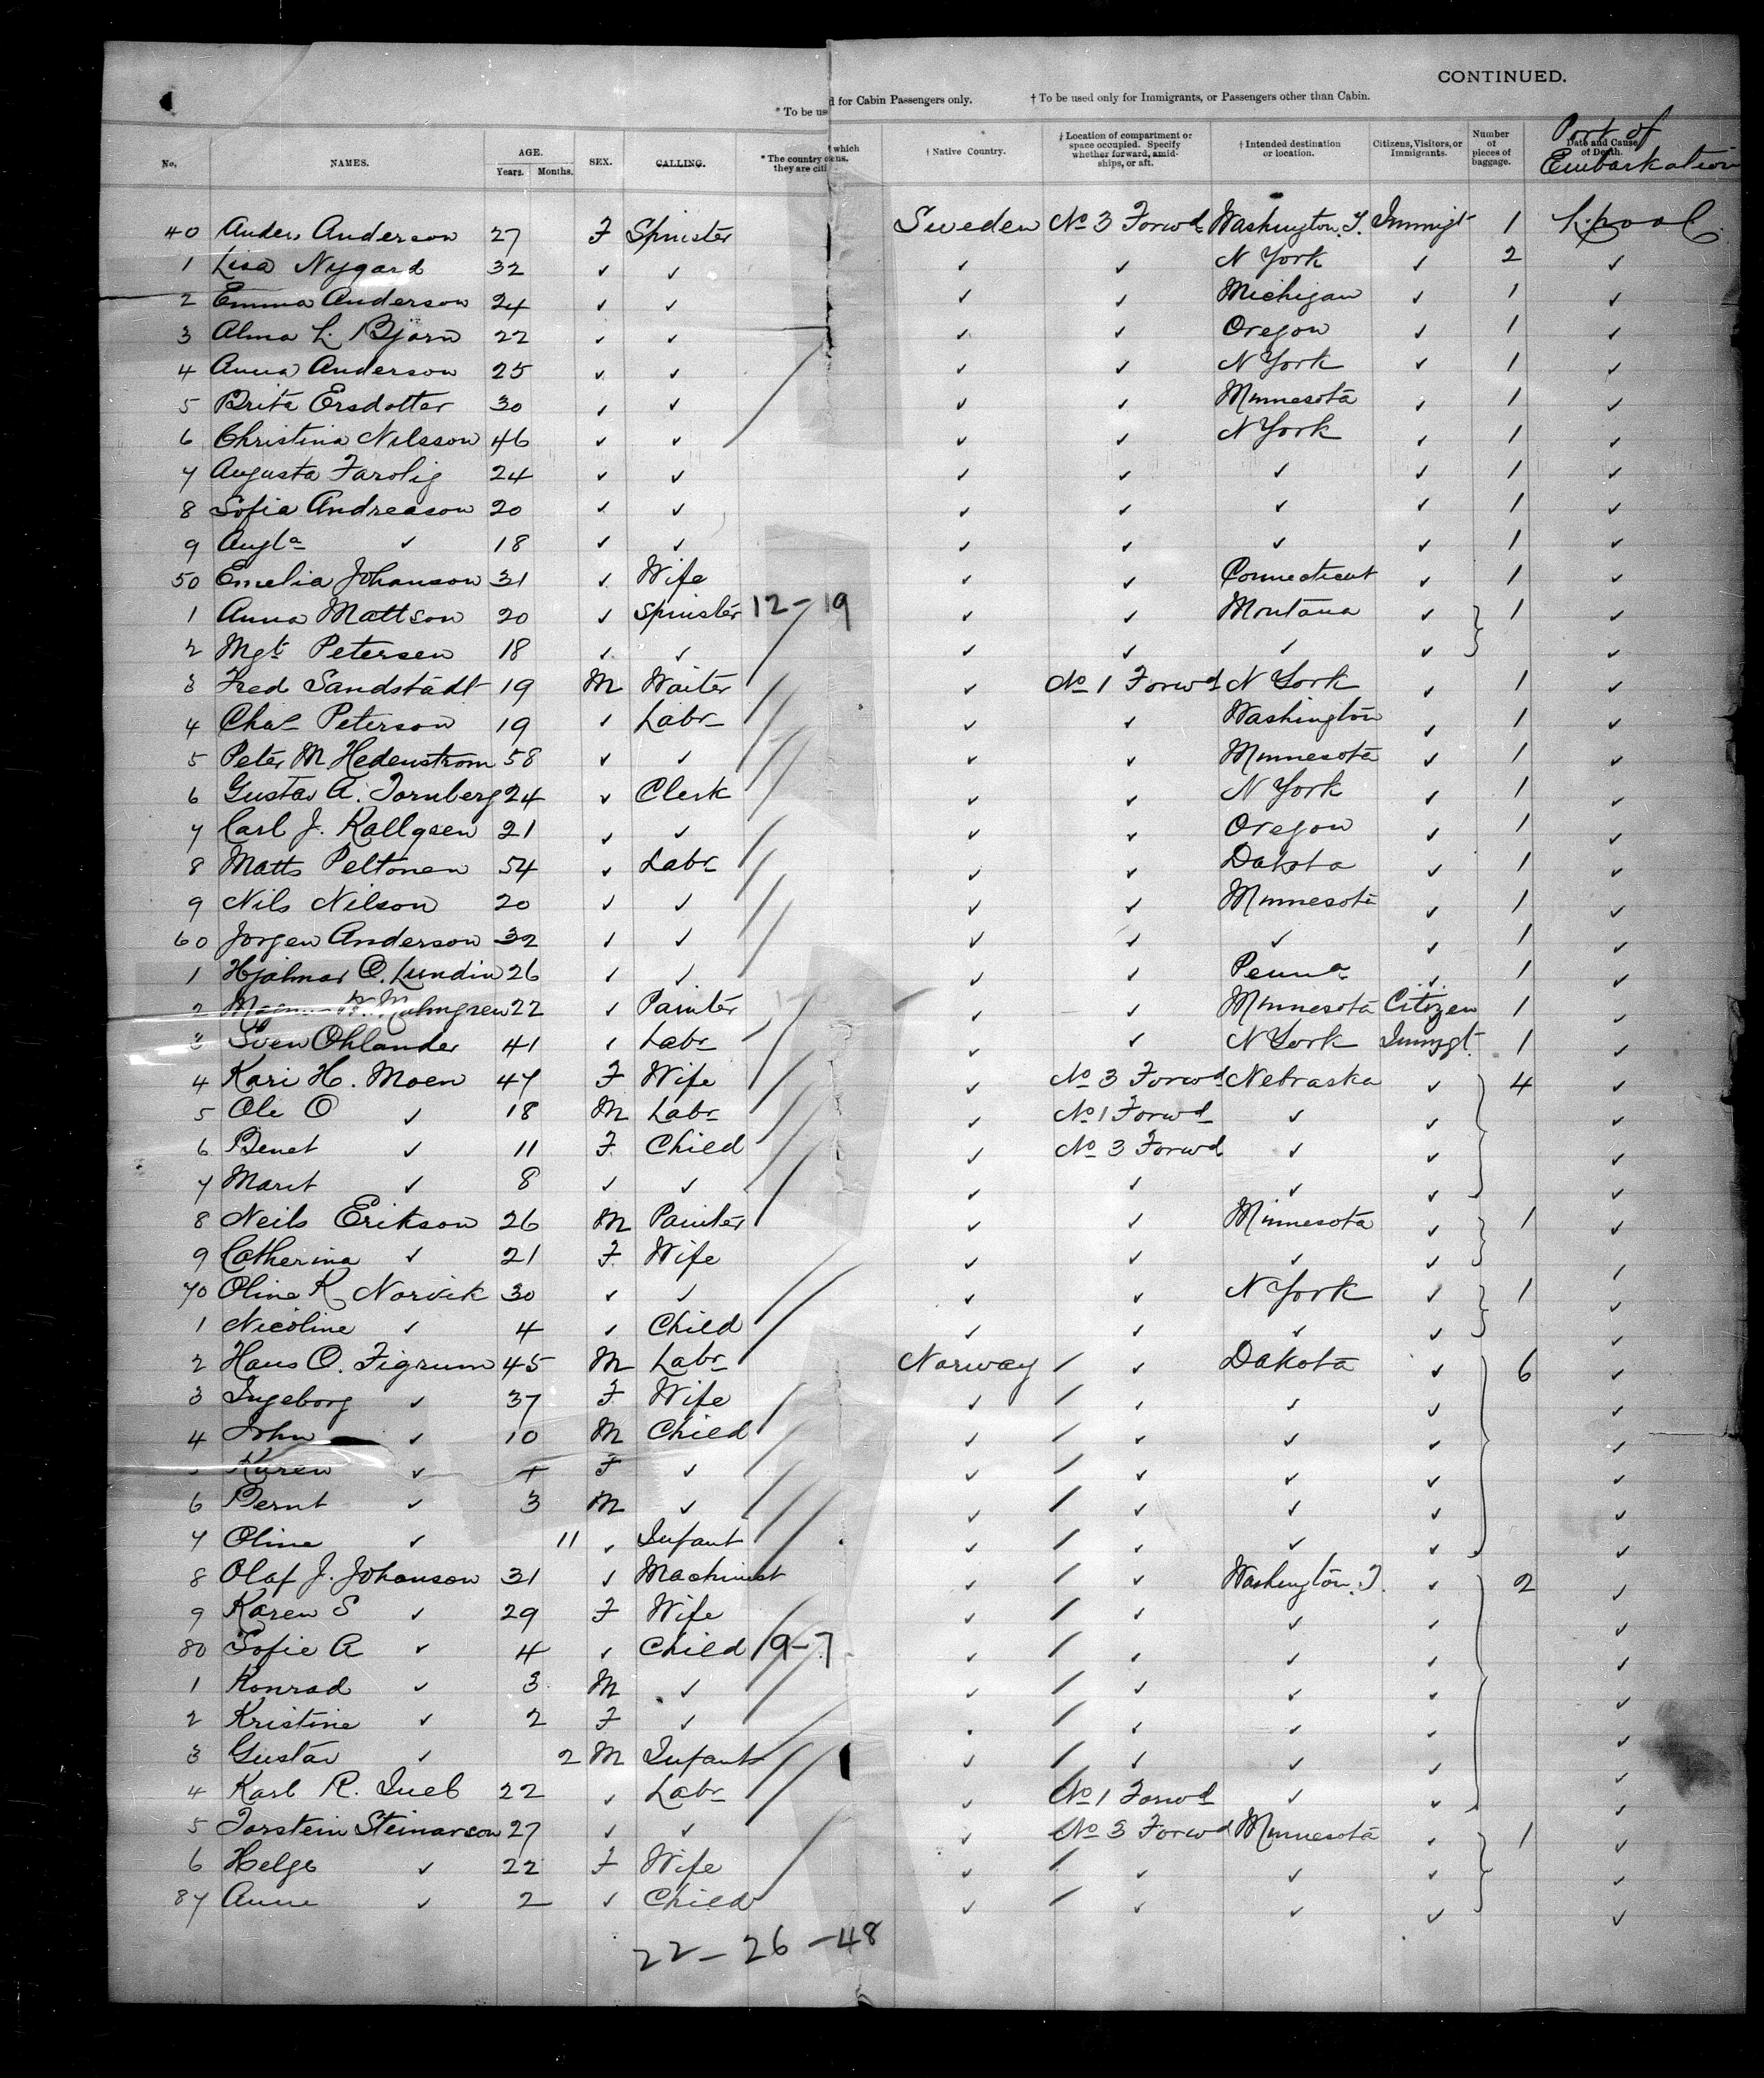 CONTINUED.
* To be us d for Cabin Passengers only. † To be used only for Immigrants, or Passengers other than Cabin.
Port of Embarkation
No. NAMES. AGE. Years. Months. SEX. CALLING. * The country o which they are citi ns. † Native Country. † Location of compartment or space occupied. Specify whether forward, amidships, or aft. † Intended destination or location. Citizens, Visitors, or Immigrants. Number of pieces of baggage. Date and Cause of Death.
40 Anders Anderson 27 F Spinster Sweden No 3 Forwd Washington. T. Immigt 1 L.pool
1 Lisa Nygard 32 ✓ ✓ ✓ ✓ N York ✓ 2 ✓
2 Emma Anderson 24 ✓ ✓ ✓ ✓ Michigan ✓ 1 ✓
3 Alma L. Bjorn 22 ✓ ✓ ✓ ✓ Oregon ✓ 1 ✓
4 Anna Anderson 25 ✓ ✓ ✓ ✓ N York ✓ 1 ✓
5 Brita Ersdotter 30 ✓ ✓ ✓ ✓ Minnesota ✓ 1 ✓
6 Christina Nilsson 46 ✓ ✓ ✓ ✓ N York ✓ 1 ✓
7 Augusta Farolig 24 ✓ ✓ ✓ ✓ ✓ ✓ 1 ✓
8 Sofia Andreason 20 ✓ ✓ ✓ ✓ ✓ ✓ 1 ✓
9 Augta ✓ 18 ✓ ✓ ✓ ✓ ✓ ✓ 1 ✓
50 Emelia Johanson 31 ✓ Wife ✓ ✓ Connecticut ✓ 1 ✓
1 Anna Mattson 20 ✓ Spinster 12-19 ✓ ✓ Montana ✓ 1 ✓
2 Mgt Petersen 18 ✓ ✓ ✓ ✓ ✓ ✓ ✓
3 Fred Sandstadt 19 M Waiter ✓ No 1 Forwd N York ✓ 1 ✓
4 Chas Peterson 19 ✓ Labr ✓ ✓ Washington ✓ 1 ✓
5 Peter M Hedenstrom 58 ✓ ✓ ✓ ✓ Minnesota ✓ 1 ✓
6 Gustav A. Tornberg 24 ✓ Clerk ✓ ✓ N York ✓ 1 ✓
7 Carl J. Kallgren 21 ✓ ✓ ✓ ✓ Oregon ✓ 1 ✓
8 Matts Peltonen 54 ✓ Labr ✓ ✓ Dakota ✓ 1 ✓
9 Nils Nilson 20 ✓ ✓ ✓ ✓ Minnesota ✓ 1 ✓
60 Jorgen Anderson 32 ✓ ✓ ✓ ✓ ✓ ✓ 1 ✓
1 Hjalmar O. Lundin 26 ✓ ✓ ✓ ✓ Penna ✓ 1 ✓
2 Malmgren 22 ✓ Painter ✓ Minnesota Citizen 1 ✓
3 Sven Ohlander 41 ✓ Labr ✓ ✓ N York Immgt. 1 ✓
4 Kari H. Moen 47 F Wife ✓ No 3 Forwd Nebraska ✓ 4 ✓
5 Ole O ✓ 18 M Labr ✓ No 1 Forwd ✓ ✓ ✓
6 Benet ✓ 11 F Child ✓ No 3 Forwd ✓ ✓ ✓
7 Marit ✓ 8 ✓ ✓ ✓ ✓ ✓ ✓ ✓
8 Neils Erikson 26 M Painter ✓ ✓ Minnesota ✓ 1 ✓
9 Catherina ✓ 21 F Wife ✓ ✓ ✓ ✓ ✓
70 Oline K Norvik 30 ✓ ✓ ✓ ✓ N York ✓ 1 ✓
1 Nicoline ✓ 4 ✓ Child ✓ ✓ ✓ ✓ ✓
2 Hans O. Figrum 45 M Labr Norway ✓ Dakota ✓ 6 ✓
3 Ingeborg ✓ 37 F Wife ✓ ✓ ✓ ✓ ✓
4 John ✓ 10 M Child ✓ ✓ ✓ ✓ ✓
5 Karen ✓ 4 F ✓ ✓ ✓ ✓ ✓ ✓
6 Bernt ✓ 3 M ✓ ✓ ✓ ✓ ✓ ✓
7 Oline ✓ 11 ✓ Infant ✓ ✓ ✓ ✓ ✓
8 Olaf J. Johanson 31 ✓ Machinist ✓ ✓ Washington. T. ✓ 2 ✓
9 Karen S ✓ 29 F Wife ✓ ✓ ✓ ✓ ✓
80 Sofie A ✓ 4 ✓ Child 19-7 ✓ ✓ ✓ ✓ ✓
1 Konrad ✓ 3 M ✓ ✓ ✓ ✓ ✓ ✓
2 Kristine ✓ 2 F ✓ ✓ ✓ ✓ ✓ ✓
3 Gustav ✓ 2 M Infant ✓ ✓ ✓ ✓ ✓
4 Karl R. 22 ✓ Labr ✓ No 1 Forwd ✓ ✓ ✓
5 Torstein Steinarson 27 ✓ ✓ ✓ No 3 Forwd Minnesota ✓ 1 ✓
6 Helge ✓ 22 F Wife ✓ ✓ ✓ ✓ ✓
87 Anne ✓ 2 ✓ Child ✓ ✓ ✓ ✓ ✓
22-26-48